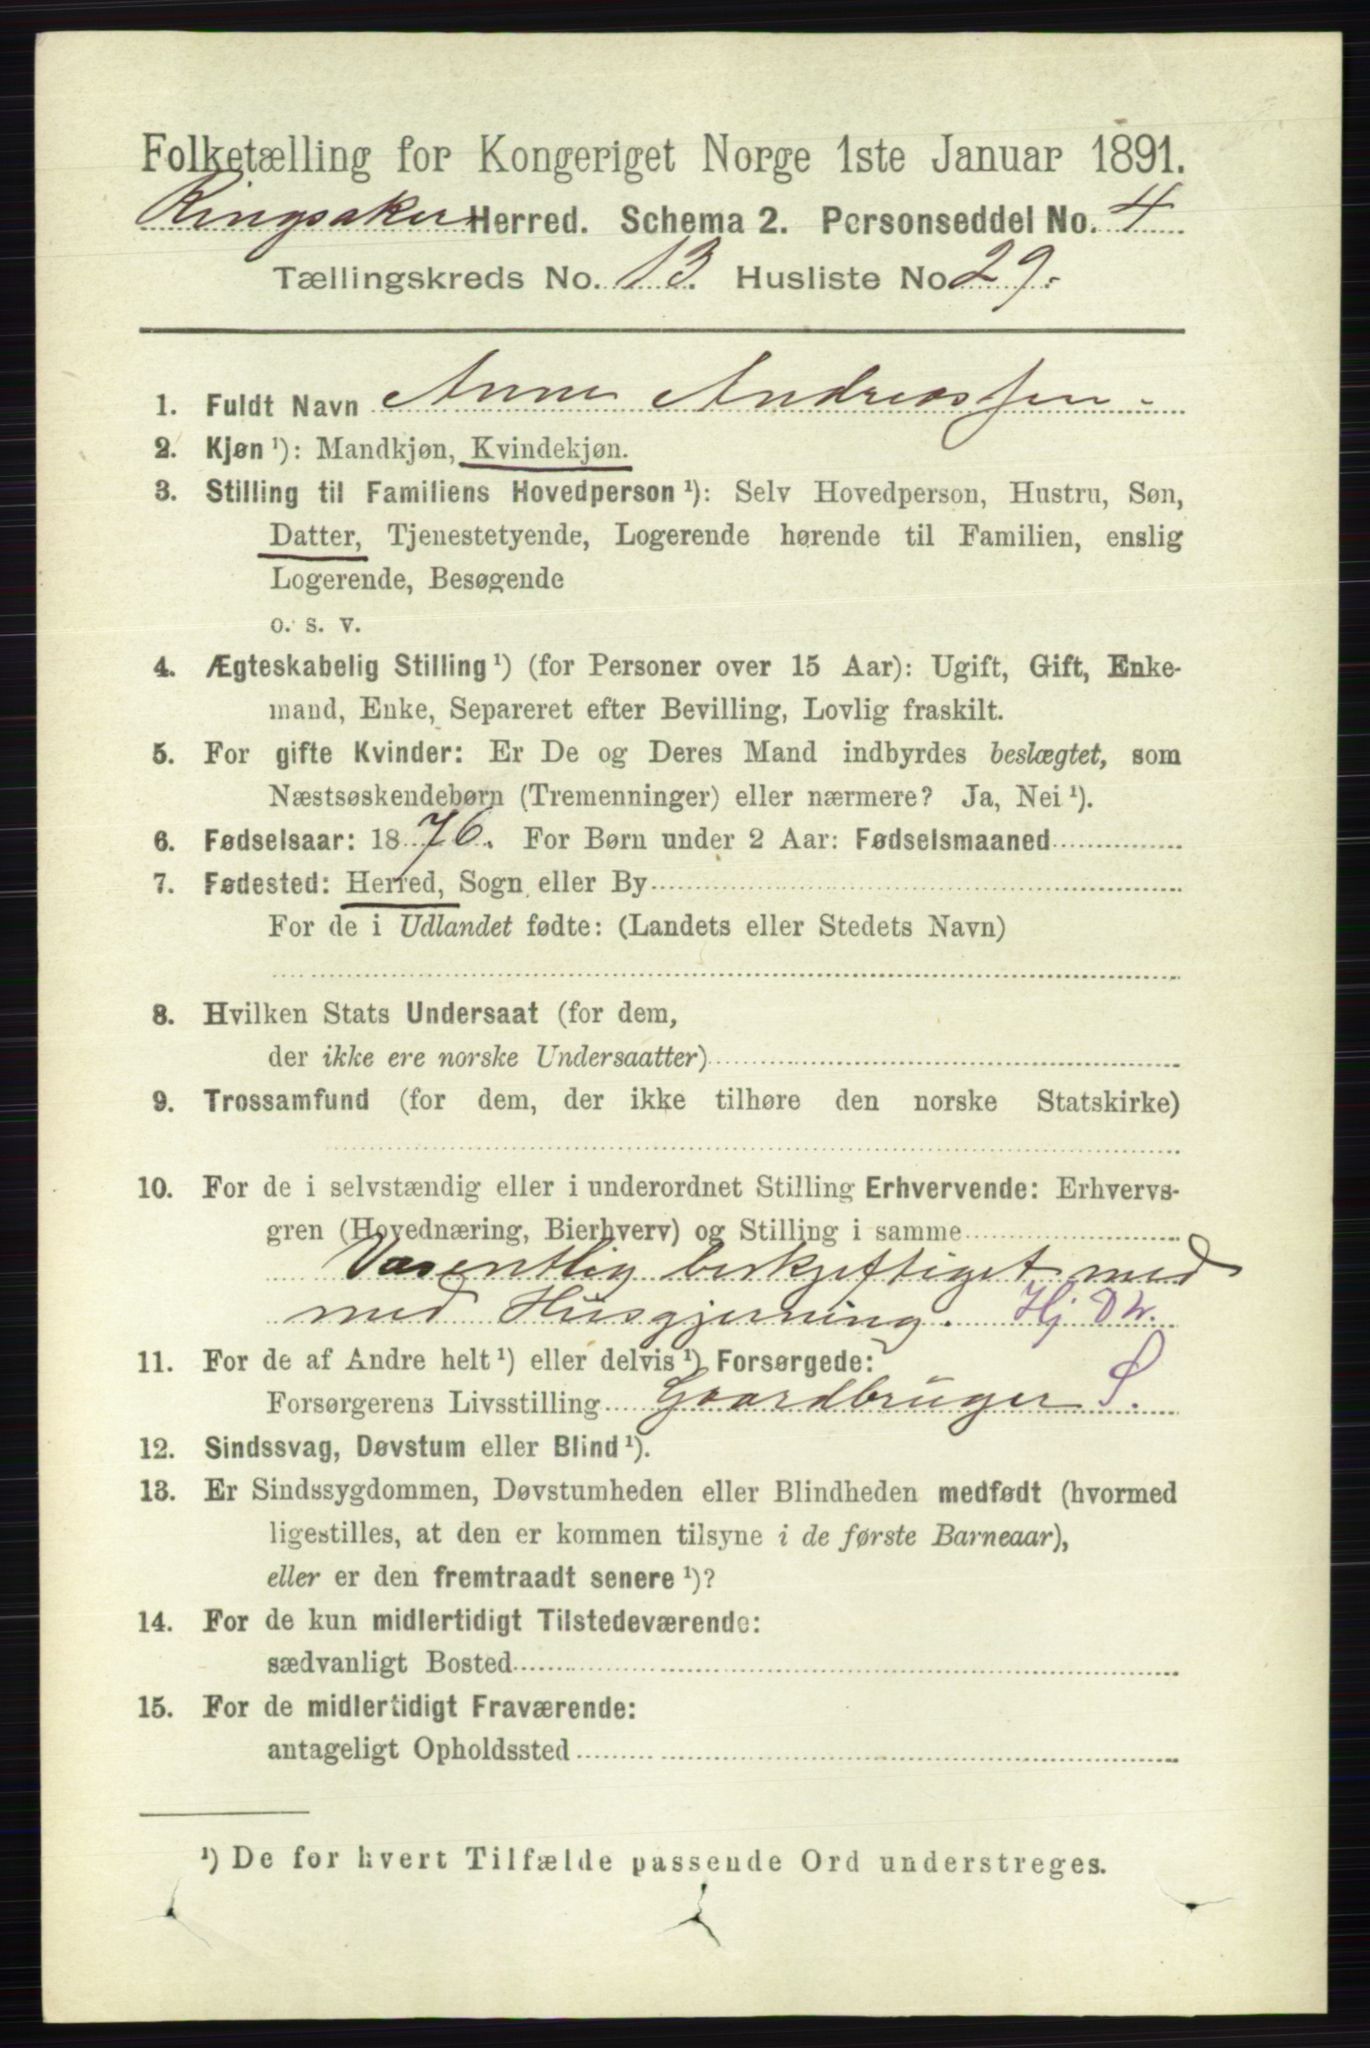 Folketælling for Kongeriget Norge 1ste Januar 1891.
Ringsaker Herred. Schema 2. Personseddel No. 4
Tællingskreds No. 13. Husliste No 29.
1. Fuldt Navn Anne Andreassen
2. Kjøn ¹): Mandkjøn, Kvindekjøn.
3. Stilling til Familiens Hovedperson ¹): Selv Hovedperson, Hustru, Søn,
Datter, Tjenestetyende, Logerende hørende til Familien, enslig
Logerende, Besøgende
o. s. v.
4. Ægteskabelig Stilling ¹) (for Personer over 15 Aar): Ugift, Gift, Enke-
mand, Enke, Separeret efter Bevilling, Lovlig fraskilt.
5. For gifte Kvinder: Er De og Deres Mand indbyrdes beslægtet, som
Næstsøskendebørn (Tremenninger) eller nærmere? Ja, Nei ¹).
6. Fødselsaar: 1876. For Børn under 2 Aar: Fødselsmaaned
7. Fødested: Herred, Sogn eller By
For de i Udlandet fødte: (Landets eller Stedets Navn)
8. Hvilken Stats Undersaat (for dem,
der ikke ere norske Undersaatter)
9. Trossamfund (for dem, der ikke tilhøre den norske Statskirke)
10. For de i selvstændig eller i underordnet Stilling Erhvervende: Erhvervs-
gren (Hovednæring, Bierhverv) og Stilling i samme
Væsentlig beskjeftiget med
med Husgjerning. Hj Dtr.
11. For de af Andre helt ¹) eller delvis ¹) Forsørgede:
Forsørgerens Livsstilling Gaardbruger S.
12. Sindssvag, Døvstum eller Blind ¹).
13. Er Sindssygdommen, Døvstumheden eller Blindheden medfødt (hvormed
ligestilles, at den er kommen tilsyne i de første Barneaar),
eller er den fremtraadt senere ¹)?
14. For de kun midlertidigt Tilstedeværende:
sædvanligt Bosted
15. For de midlertidigt Fraværende:
antageligt Opholdssted
¹) De for hvert Tilfælde passende Ord understreges.